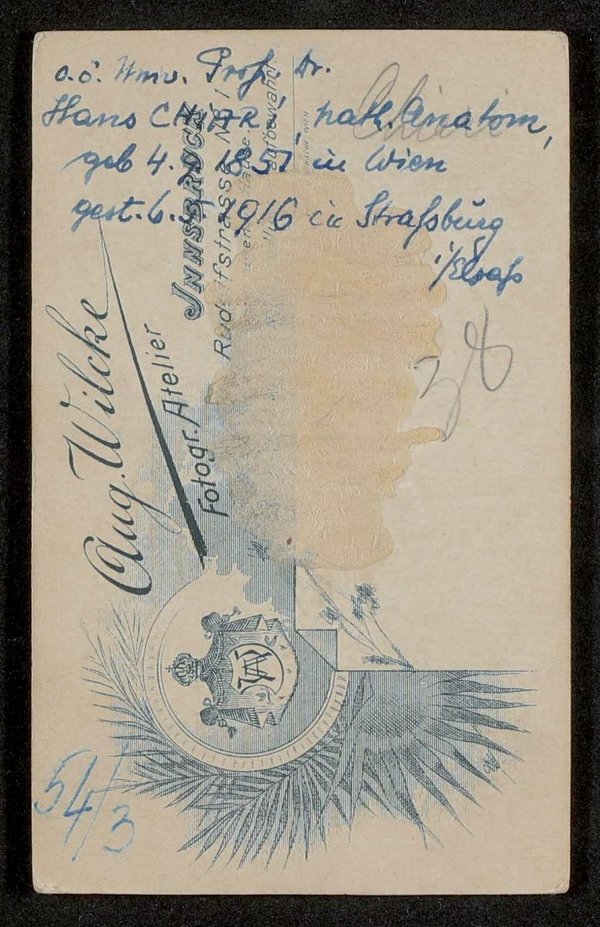 o.ö. Univ. Prof. Dr.
Hans CHIARI, path. Anatom,
geb 4. 1851 in Wien
gest. 6. 5. 1916 in Straßburg
i/Elsaß
Chiari
38
Aug. Wilcke
Fotogr. Atelier
INNSBRUCK
Rudolfstrasse No 1
aufbewahrt.
54/3